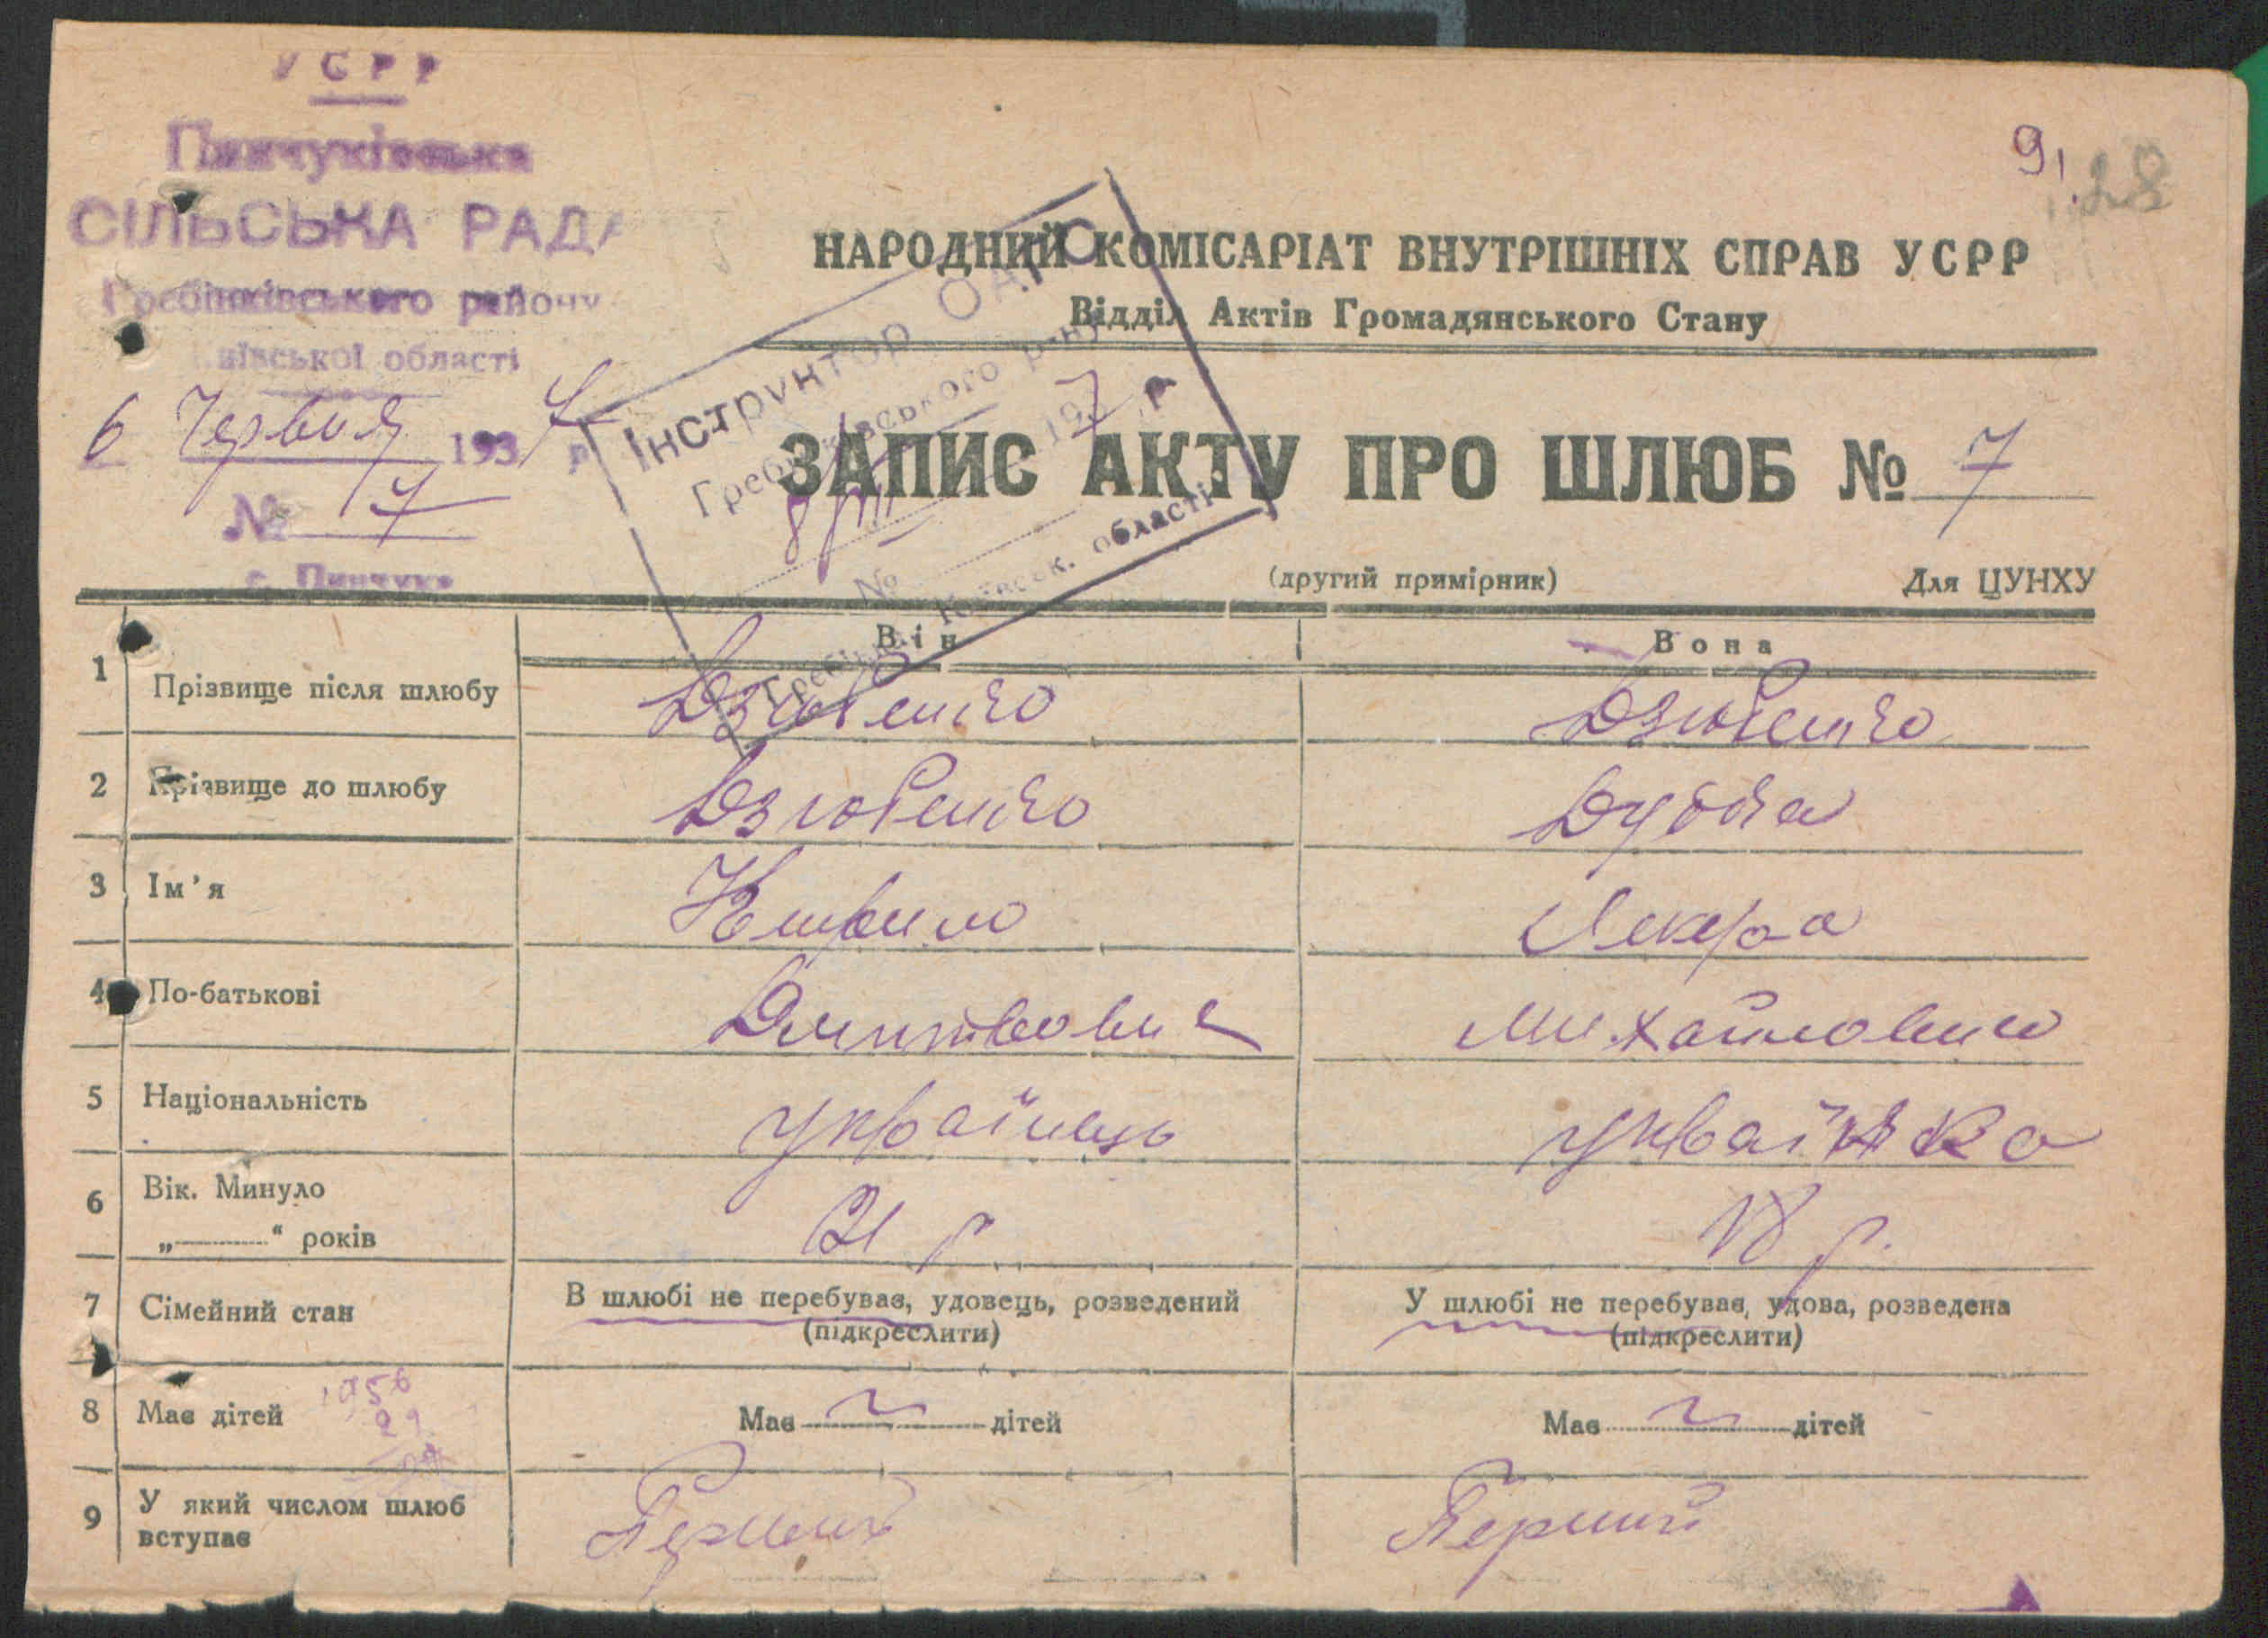 УСРР
Пинчуківська
СІЛЬСЬКА РАДА
Гребінківського району
Київської області
6 Червня 1937 р
№ 7
с. Пинчуки
9, 28
НАРОДНИЙ КОМІСАРІАТ ВНУТРІШНІХ СПРАВ УСРР
Відділ Актів Громадянського Стану
Інструктор ОАГС
Гребінківського р-ну
8/VII 1937 р.
№
Київськ. області
ЗАПИС АКТУ ПРО ШЛЮБ № 7
(другий примірник) Для ЦУНХУ
Він Вона
1 Прізвище після шлюбу Дзюбенко Дзюбенко
2 Прізвище до шлюбу Дзюбенко Дубова
3 Ім’я Кирило Лукера
4 По-батькові Дмитрович Михайловна
5 Національність Українець Українка
6 Вік. Минуло 21 р 18 р.
„ “ років
7 Сімейний стан В шлюбі не перебував, удовець, розведений У шлюбі не перебував, удова, розведена
(підкреслити) (підкреслити)
8 Має дітей Має дітей Має дітей
1956
9 У який числом шлюб Перший Перший
вступає